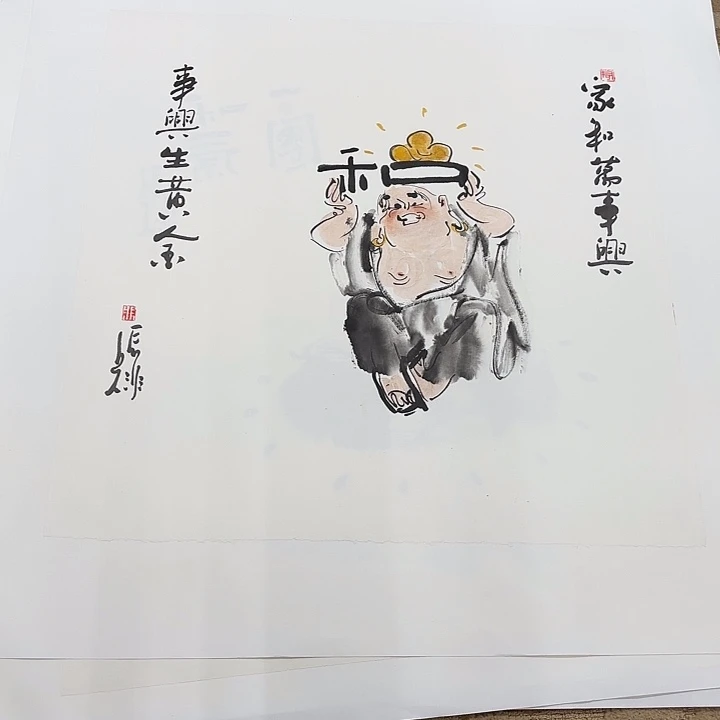 家和萬事興
和
事興生黄金
張